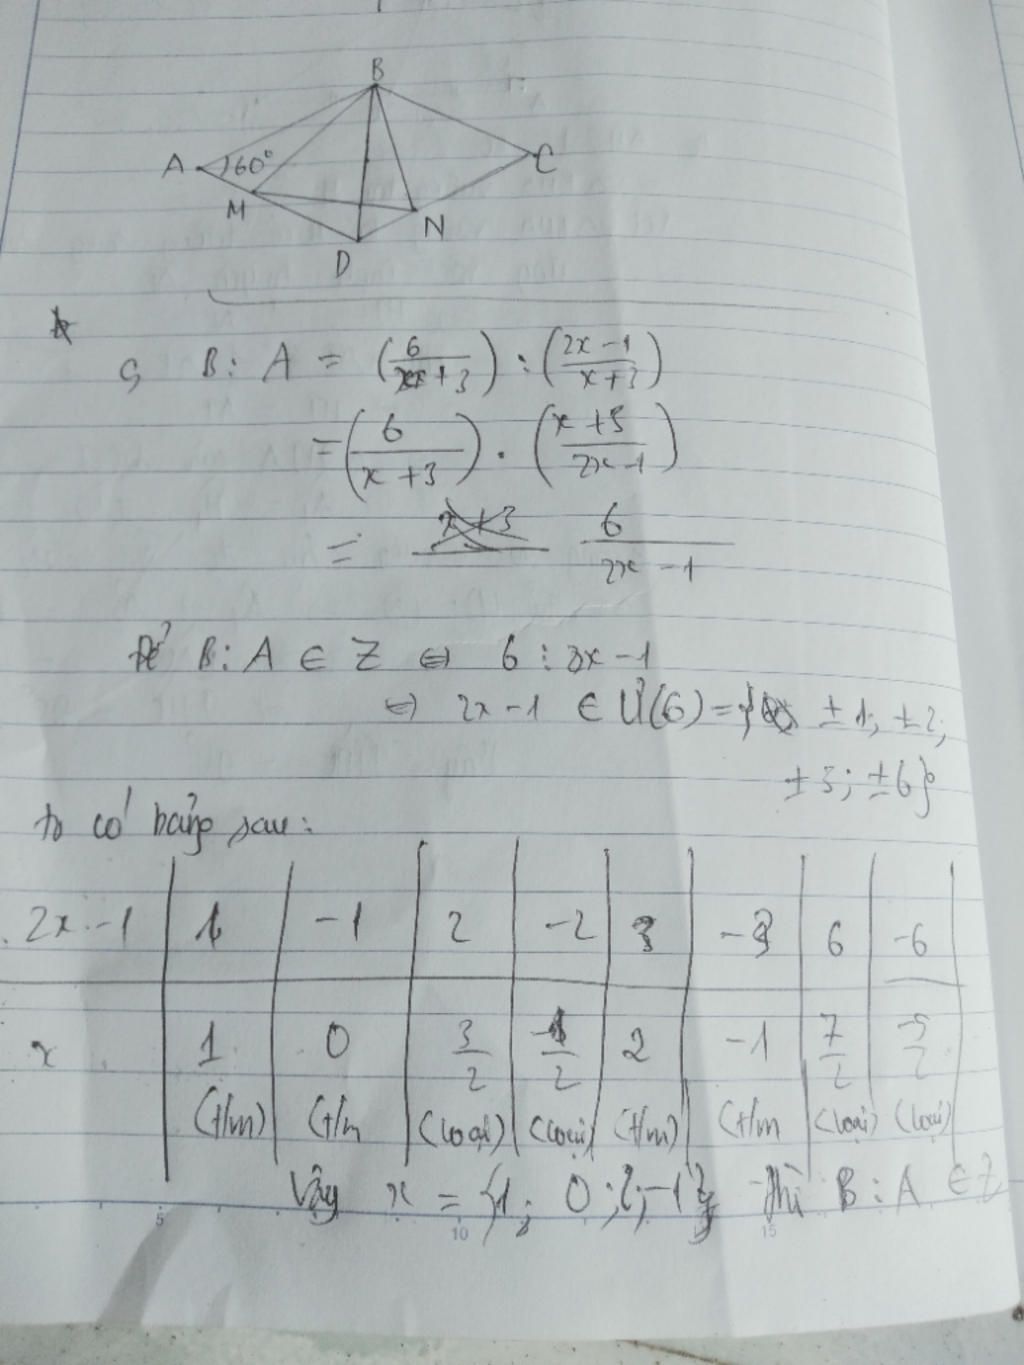 B
A 60° C
M N
D
c, B : A = (6/(x+3)) : ((2x-1)/(x+3))
= (6/(x+3)) . ((x+3)/(2x-1))
= 6/(2x-1)
Để B : A ∈ Z ⇔ 6 ⋮ 2x-1
⇔ 2x-1 ∈ Ư(6) = { ±1; ±2;
±3; ±6}
ta có bảng sau:
2x-1 1 -1 2 -2 3 -3 6 -6
x 1 0 3/2 -1/2 2 -1 7/2 -5/2
(t/m) (t/m (loại) (loại) (t/m) (t/m (loại) (loại)
Vậy x = {1; 0; 2; -1} thì B : A ∈ Z
5 10 15